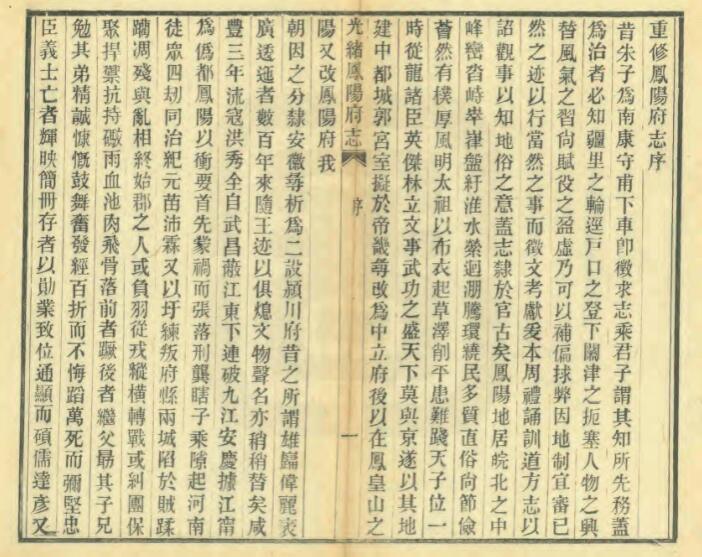 重修鳳陽府志序
昔朱子爲南康守甫下車卽徵求志乘君子謂其知所先務蓋
爲治者必知疆里之輪逕戸口之登下關津之扼塞人物之興
替風氣之習尙賦役之盈虛乃可以補偏捄弊因地制宜審已
然之迹以行當然之事而徵文考獻爰本周禮誦訓道方志以
詔觀事以知地俗之意蓋志隸於官古矣鳳陽地居皖北之中
峰巒沓峙崒嵂盤紆淮水縈迴淜騰環繞民多質直俗尙節儉
薈然有樸厚風明太祖以布衣起草澤削平患難踐天子位一
時從龍諸臣英傑林立文事武功之盛天下莫與京遂以其地
建中都城郭宮室擬於帝畿尋改爲中立府後以在鳳皇山之
光緒鳳陽府志 序 一
陽又改鳳陽府我
朝因之分隸安徽尋析爲二設潁川府昔之所謂雄巋偉麗袤
廣逶迤者數百年來隨王迹以俱熄文物聲名亦稍稍替矣咸
豐三年流寇洪秀全自武昌蔽江東下連破九江安慶據江甯
爲僞都鳳陽以衝要首先蒙禍而張落刑龔瞎子乘隙起河南
徒眾四刧同治紀元苗沛霖又以圩練叛府縣兩城陷於賊蹂
躪凋殘與亂相終始郡之人或負羽從戎縱橫轉戰或糾團保
聚捍禦抗持礮雨血池肉飛骨落前者蹶後者繼父勗其子兄
勉其弟精誠慷慨鼓舞奮發經百折而不悔蹈萬死而彌堅忠
臣義士亡者輝映簡冊存者以勛業致位通顯而碩儒達彥又